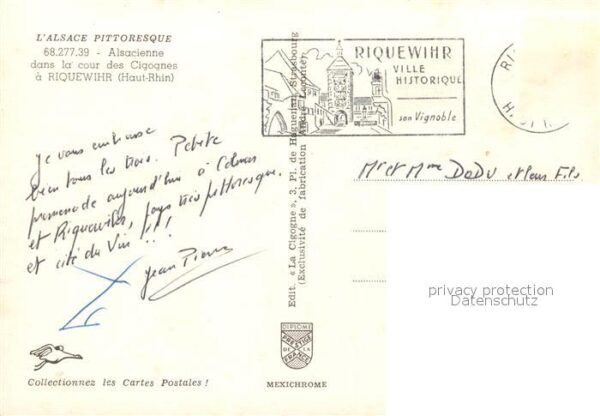 L'ALSACE PITTORESQUE
68.277.39 - Alsacienne
dans la cour des Cigognes
à RIQUEWIHR (Haut-Rhin)
RIQUEWIHR
VILLE
HISTORIQUE
son Vignoble
Je vous embrasse
bien tous les trois. Petite
promenade aujourd'hui à Colmar
et Riquewihr, pays très pittoresque.
et cité du Vin !!!
Jean Pierre
Mr et Mme DeDu et leur Fils
Edit. « La Cigogne », 3, Pl. de Haguenau, Strasbourg
(Exclusivité de fabrication André Leconte)
privacy protection
Datenschutz
DIPLOME
PRESTIGE
DE LA
FRANCE
Collectionnez les Cartes Postales !
MEXICHROME